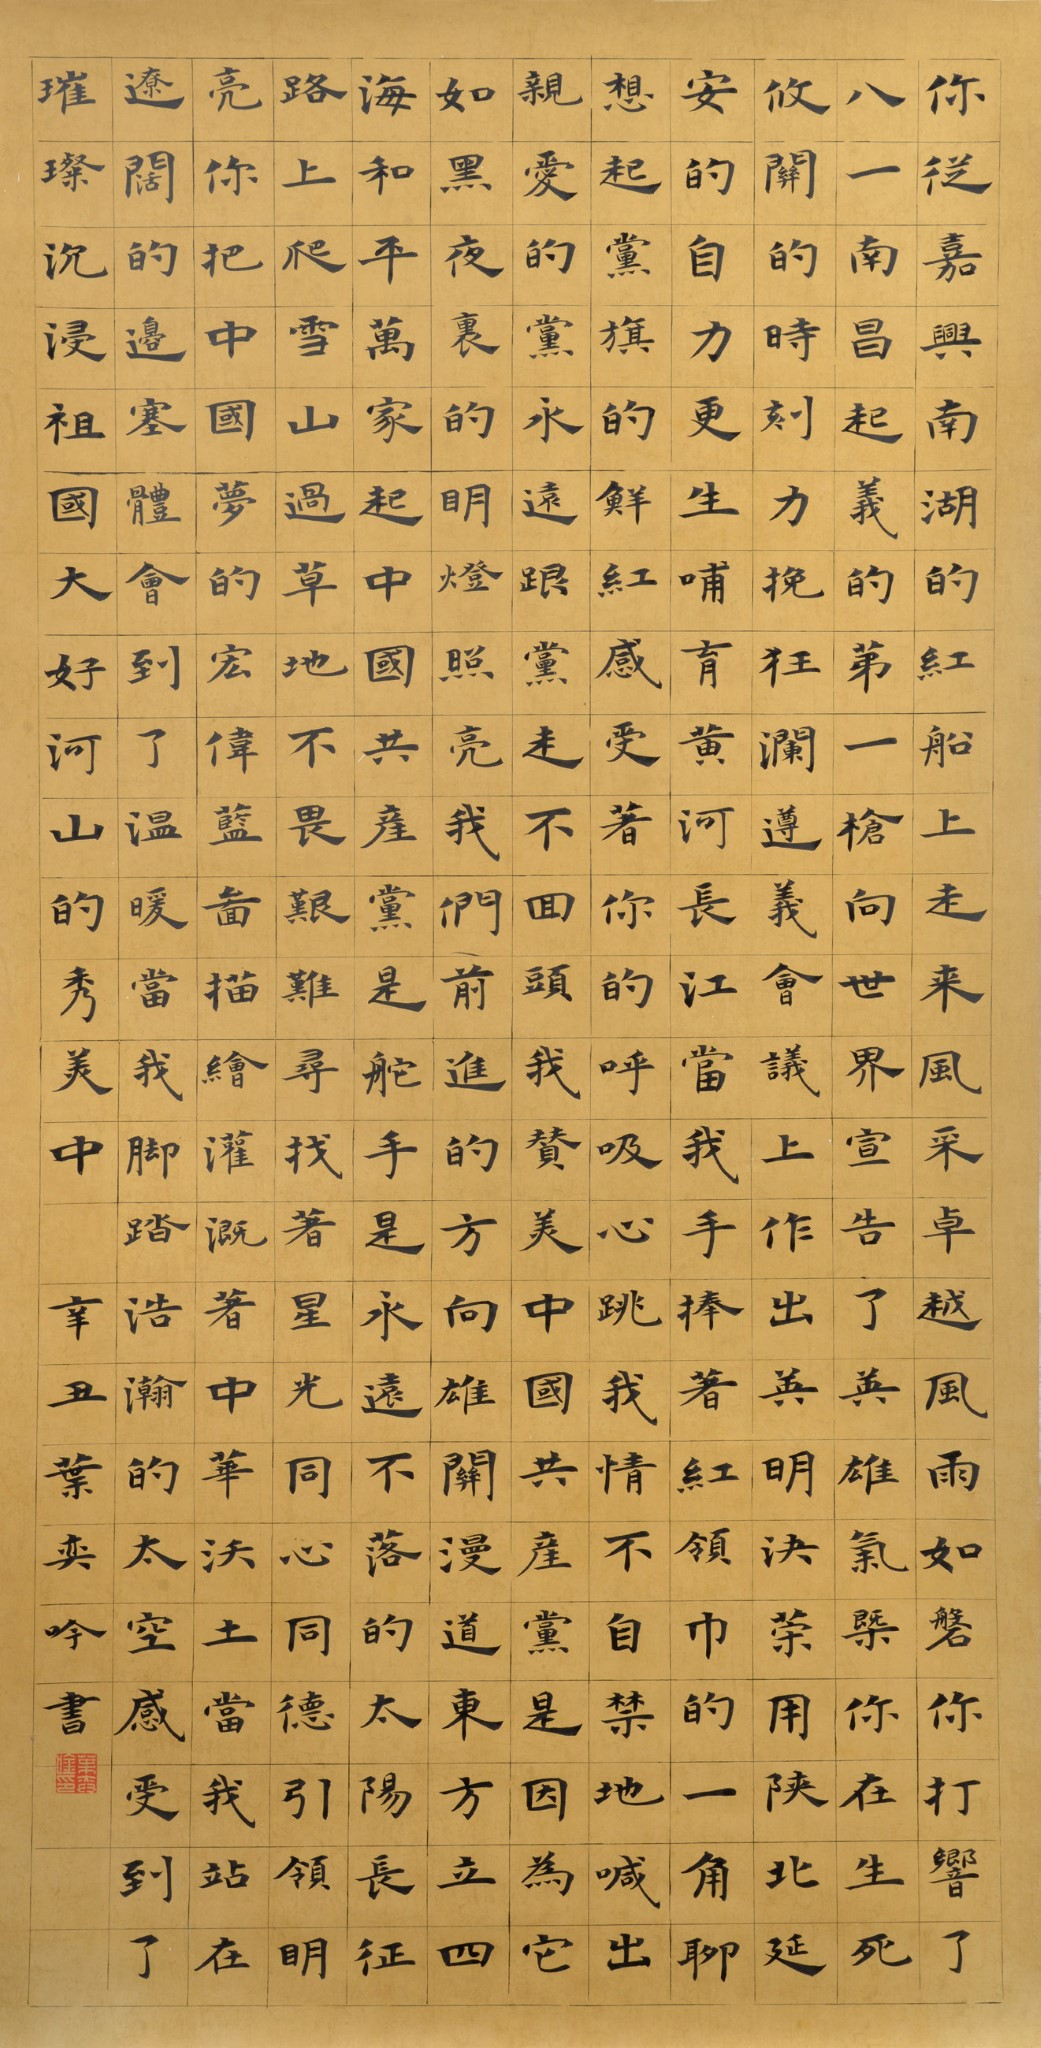 你從嘉興南湖的紅船上走来風采卓越風雨如磐你打響了
八一南昌起義的第一槍向世界宣告了英雄氣槩你在生死
攸關的時刻力挽狂瀾遵義會議上作出英明决荣用陝北延
安的自力更生哺育黄河長江當我手捧著紅領巾的一角聊
想起黨旗的鮮紅感受著你的呼吸心跳我情不自禁地喊出
親愛的黨永遠跟黨走不回頭我赞美中國共産黨是因為它
如黑夜裏的明燈照亮我們前進的方向雄關漫道東方立四
海和平萬家起中國共産黨是舵手是永遠不落的太陽長征
路上爬雪山過草地不畏艱難尋找著星光同心同德引領明
亮你把中國夢的宏偉藍啚描繪灌溉著中華沃土當我站在
遼闊的邊塞體會到了温暖當我脚踏浩瀚的太空感受到了
璀璨沉浸祖國大好河山的秀美中
辛丑葉奕吟書